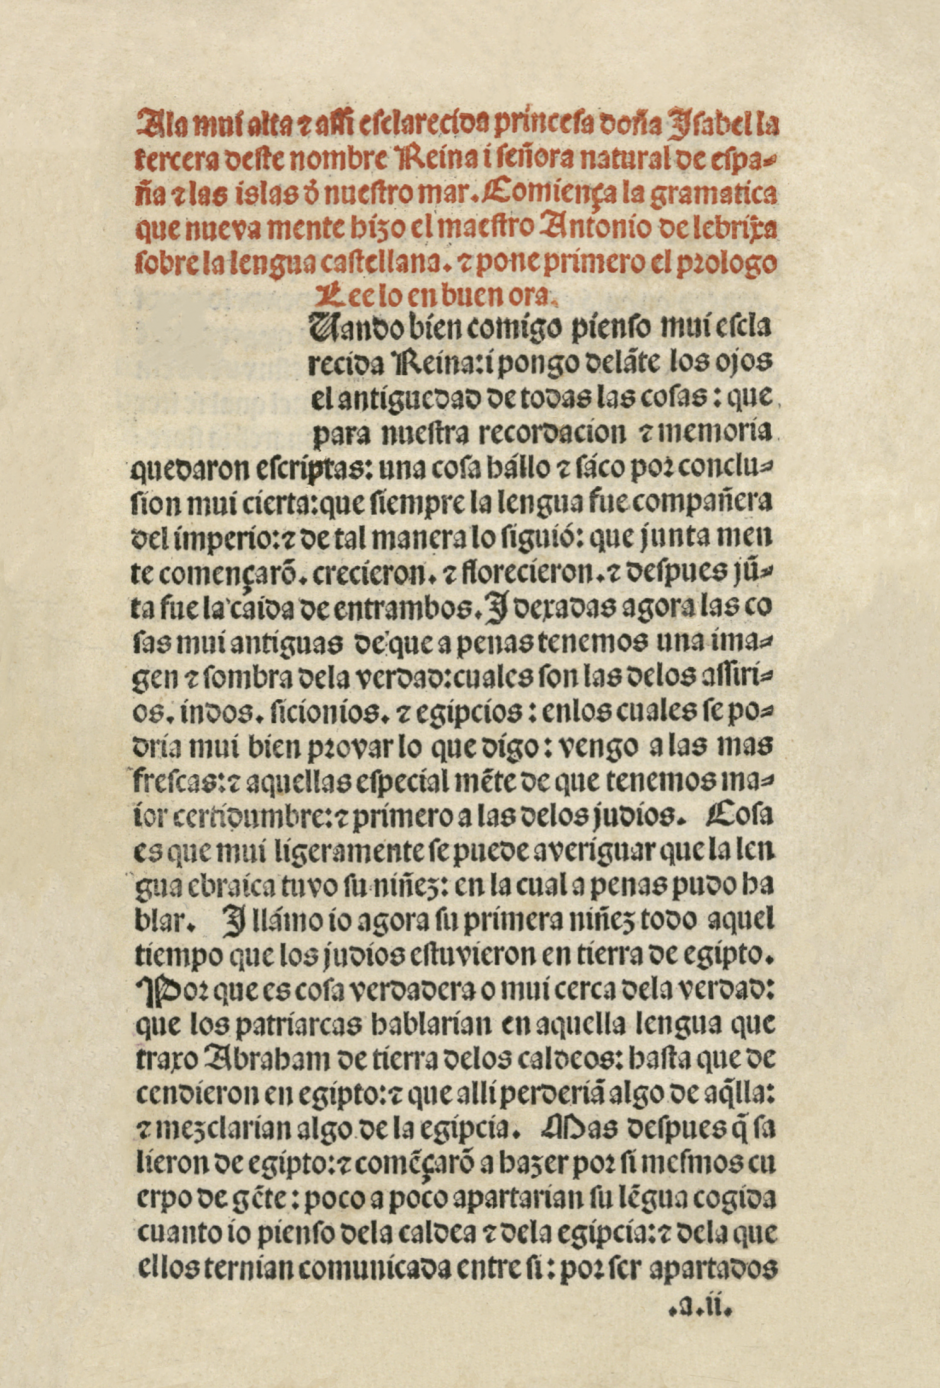 Ala mui alta ⁊ assi esclarecida princesa doña Isabel la
tercera deste nombre Reina i señora natural de espa-
ña ⁊ las islas õ nuestro mar. Comiença la gramatica
que nueva mente hizo el maestro Antonio de lebrixa
sobre la lengua castellana. ⁊ pone primero el prologo
Lee lo en buen ora.
Uando bien comigo pienso mui escla
recida Reina: i pongo delãte los ojos
el antiguedad de todas las cosas: que
para nuestra recordacion ⁊ memoria
quedaron escriptas: una cosa hállo ⁊ sáco por conclu-
sion mui cierta: que siempre la lengua fue compañera
del imperio: ⁊ de tal manera lo siguió: que junta men
te começarõ. crecieron. ⁊ florecieron. ⁊ despues jũ-
ta fue la caida de entrambos. I dexadas agora las co
sas mui antiguas de que a penas tenemos una ima-
gen ⁊ sombra dela verdad: cuales son las delos assiri-
os. indos. sicionios. ⁊ egipcios: enlos cuales se po-
dria mui bien provar lo que digo: vengo a las mas
frescas: ⁊ aquellas especial mẽte de que tenemos ma-
ior certidumbre: ⁊ primero a las delos judios. Cosa
es que mui ligeramente se puede averiguar que la len
gua ebraica tuvo su niñez: en la cual a penas pudo ha
blar. I llámo io agora su primera niñez todo aquel
tiempo que los judios estuvieron en tierra de egipto.
Por que es cosa verdadera o mui cerca dela verdad:
que los patriarcas hablarian en aquella lengua que
traxo Abraham de tierra delos caldeos: hasta que de
cendieron en egipto: ⁊ que alli perderiã algo de aq̃lla:
⁊ mezclarian algo de la egipcia. Mas despues q̃ sa
lieron de egipto: ⁊ comẽçarõ a hazer por si mesmos cu
erpo de gẽte: poco a poco apartarian su lẽgua cogida
cuanto io pienso dela caldea ⁊ dela egipcia: ⁊ dela que
ellos ternian comunicada entre si: por ser apartados
.a.ii.